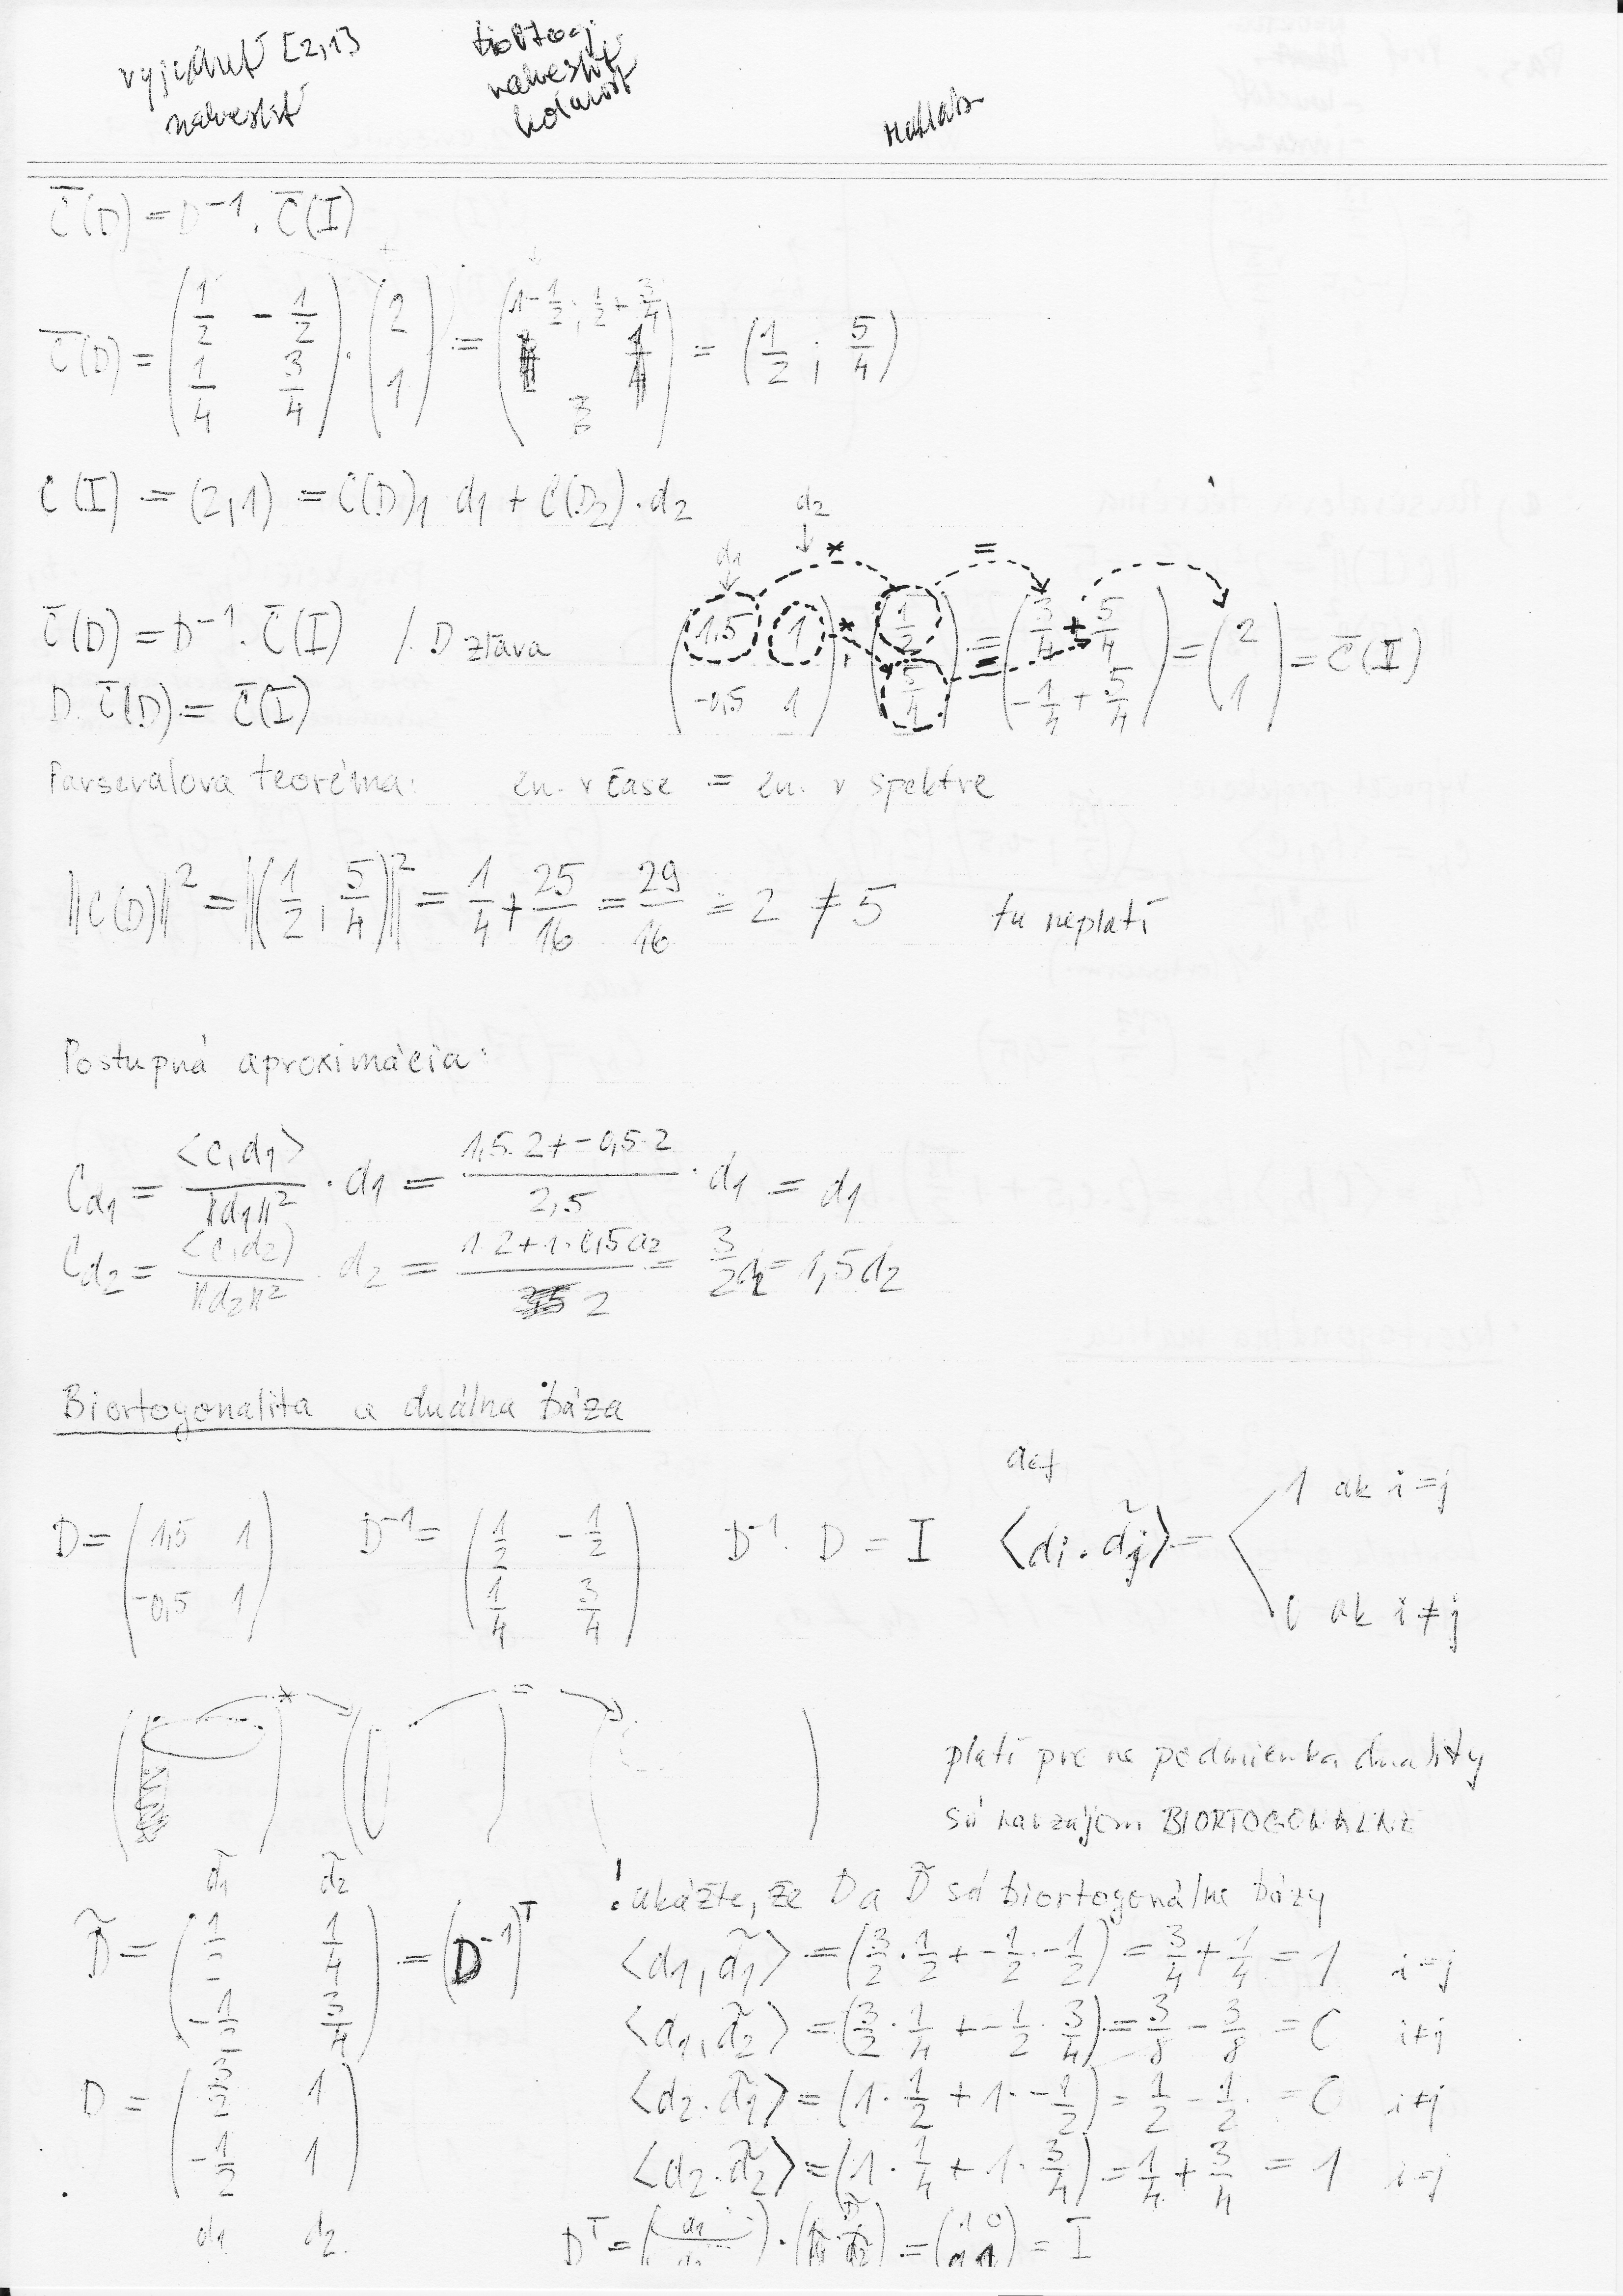 vyjadriť [2,1]
nakresliť
nakresliť
C̄(D) = D⁻¹ . C̄(I)
C̄(D) = ( 1/2 -1/2 ; 1/4 3/4 ) . ( 2 ; 1 ) = ( 1-1/2 ; 1/2+3/4 ) = ( 1/2 ; 5/4 )
C(I) = (2,1) = C(D)₁ d₁ + C(D₂) . d₂
d₁ d₂
C̄(D) = D⁻¹ . C̄(I) /. D zľava
( 1,5 1 ; -0,5 1 ) . ( 1/2 ; 5/4 ) = ( 3/4 + 5/4 ; -1/4 + 5/4 ) = ( 2 ; 1 ) = C̄(I)
D . C̄(D) = C̄(I)
Parsevalova teoréma: en. v čase = en. v spektre
||C(D)||² = ||( 1/2 , 5/4 )||² = 1/4 + 25/16 = 29/16 = 2 ≠ 5 tu neplatí
Postupná aproximácia:
C_d₁ = <c,d₁>/||d₁||² . d₁ = (1,5.2+-0,5.2)/2,5 . d₁ = d₁
C_d₂ = <c,d₂>/||d₂||² . d₂ = /2 = 3/2 d₂ = 1,5 d₂
Biortogonalita a duálna báza
def
D = ( 1,5 1 ; -0,5 1 ) D⁻¹ = ( 1/2 -1/2 ; 1/4 3/4 ) D⁻¹ . D = I <dᵢ . d̃ⱼ> = 1 ak i=j
0 ak i≠j
* =
platí pre ne podmienka duality
sú navzájom BIORTOGONÁLNE
d̃₁ d̃₂
! ukážte, že D a D̃ sú biortogonálne bázy
D̃ = ( 1/2 1/4 ; -1/2 3/4 ) = (D⁻¹)ᵀ
<d₁, d̃₁> = ( 3/2 . 1/2 + -1/2 . -1/2 ) = 3/4 + 1/4 = 1 i=j
<d₁, d̃₂> = ( 3/2 . 1/4 + -1/2 . 3/4 ) = 3/8 - 3/8 = 0 i≠j
D = ( 3/2 1 ; -1/2 1 )
<d₂ . d̃₁> = ( 1 . 1/2 + 1 . -1/2 ) = 1/2 - 1/2 = 0 i≠j
<d₂ . d̃₂> = ( 1 . 1/4 + 1 . 3/4 ) = 1/4 + 3/4 = 1 i=j
d₁ d₂
Dᵀ = = I